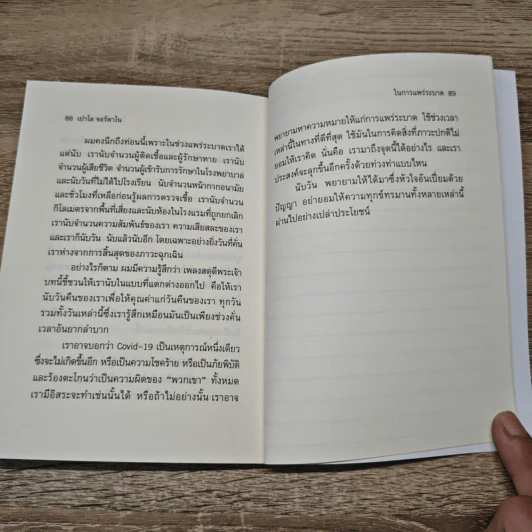 88 เปาโล จอร์ดาโน
ผมคงนึกถึงท่อนนี้เพราะในช่วงแพร่ระบาดเราได้
แต่นับ เรานับจำนวนผู้ติดเชื้อและผู้รักษาหาย เรานับ
จำนวนผู้เสียชีวิต จำนวนผู้เข้ารับการรักษาในโรงพยาบาล
และนับวันที่ไม่ได้ไปโรงเรียน นับจำนวนหน้ากากอนามัย
และชั่วโมงที่เหลือก่อนรู้ผลการตรวจเชื้อ เรานับจำนวน
กิโลเมตรจากพื้นที่เสี่ยงและนับห้องในโรงแรมที่ถูกยกเลิก
เรานับจำนวนความสัมพันธ์ของเรา ความเสียสละของเรา
และเราก็นับวัน นับแล้วนับอีก โดยเฉพาะอย่างยิ่งวันที่คั่น
เราห่างจากการสิ้นสุดของภาวะฉุกเฉิน
อย่างไรก็ตาม ผมมีความรู้สึกว่า เพลงสดุดีพระเจ้า
บทนี้ชี้ชวนให้เรานับในแบบที่แตกต่างออกไป คือให้เรา
นับวันคืนของเราเพื่อให้คุณค่าแก่วันคืนของเรา ทุกวัน
รวมทั้งวันเหล่านี้ซึ่งเรารู้สึกเหมือนมันเป็นเพียงช่วงคั่น
เวลาอันยากลำบาก
เราอาจบอกว่า Covid-19 เป็นเหตุการณ์หนึ่งเดียว
ซึ่งจะไม่เกิดขึ้นอีก หรือเป็นความโชคร้าย หรือเป็นภัยพิบัติ
และร้องตะโกนว่าเป็นความผิดของ “พวกเขา” ทั้งหมด
เรามีอิสระจะทำเช่นนั้นได้ หรือถ้าไม่อย่างนั้น เราอาจ
ในการแพร่ระบาด 89
พยายามหาความหมายให้แก่การแพร่ระบาด ใช้ช่วงเวลา
เหล่านี้ในทางที่ดีที่สุด ใช้มันในการคิดสิ่งที่ภาวะปกติไม่
ยอมให้เราคิด นั่นคือ เรามาถึงจุดนี้ได้อย่างไร และเรา
ประสงค์จะลุกขึ้นอีกครั้งด้วยท่วงท่าแบบไหน
นับวัน พยายามให้ได้มาซึ่งหัวใจอันเปี่ยมด้วย
ปัญญา อย่ายอมให้ความทุกข์ทรมานทั้งหลายเหล่านี้
ผ่านไปอย่างเปล่าประโยชน์